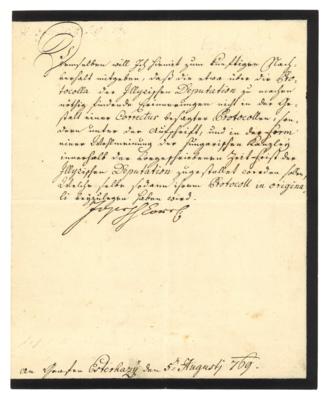 Demselben will Ich hiemit zum künftigen Nach-
verhalt mitgeben, daß die etwa über die Pro-
tocolla der Illyrischen Deputation zu machen
nöthig findende Erinnerungen nicht in der Ge-
stalt einer Correctur besagter Protocollen, son-
dern unter der Aufschrift, und in der Form
einer Wohlmeinung der Hungarischen Kanzley
innerhalb der vorgeschriebenen Zeit-Frist der
Illyrischen Deputation zugestellet werden sollen,
Welche selbe sodann ihrem Protocoll in origina-
li beyzulegen haben wird.
Joseph Corr
An Grafen Esterhazÿ den 5t Augustj 769.